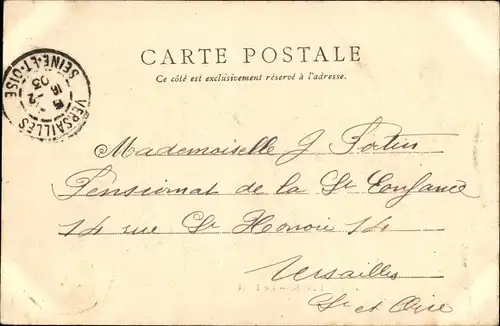 CARTE POSTALE
Ce côté est exclusivement réservé à l'adresse.
VERSAILLES
SEINE-ET-OISE
16
12
03
Mademoiselle J. Fortin
Pensionnat de la Ste Enfance
14 rue St Honoré 14
Versailles
Se et Oise